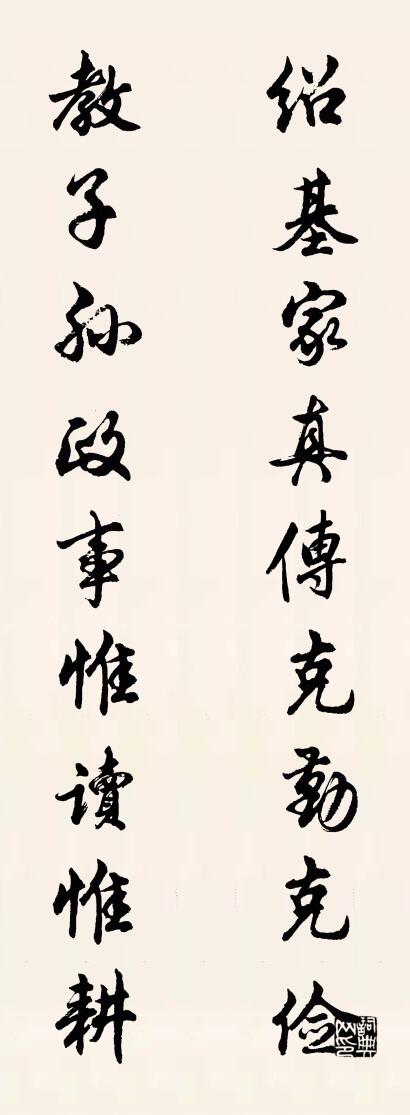 绍基家真傳克勤克俭
教子孙政事惟讀惟耕